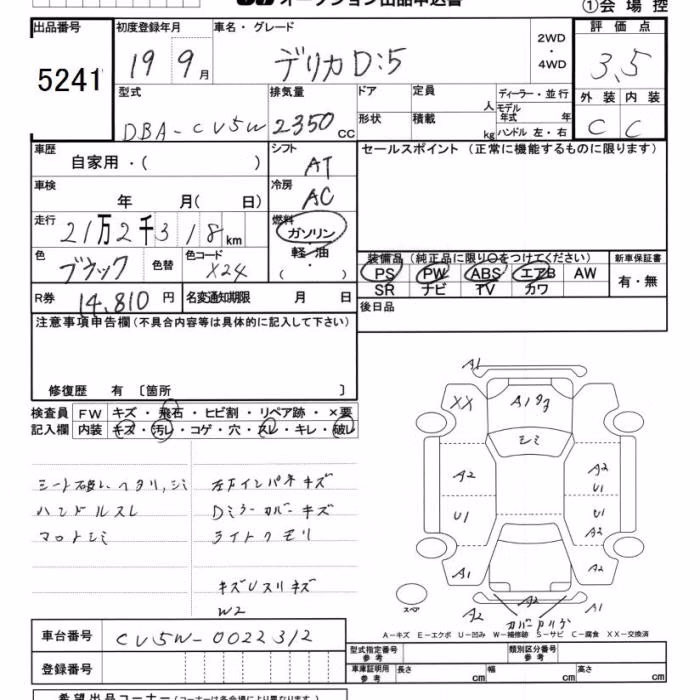 オークション出品申込書
①会場控
出品番号 初度登録年月 車名・グレード 2WD・4WD 評価点
5241 19 9月 デリカD:5 3.5
型式 排気量 ドア 定員 人 ディーラー・並行 外装 内装
DBA-CV5W 2350cc 形状 積載 kg モデル年式 年 ハンドル 左・右 C C
車歴 シフト セールスポイント (正常に機能するものに限ります)
自家用・( ) AT
車検 冷房
年 月( 日) AC
走行 燃料
21万2千318km ガソリン
軽・油
( ・ )
色 色替 色コード 装備品 (純正品に限り○をつけてください) 新車保証書
ブラック X24 PS PW ABS エアB AW 有・無
SR ナビ TV カワ
R券 14,810円 名変通知期限 月 日 後日品
注意事項申告欄(不具合内容等は具体的に記入して下さい)
修復歴 有 〔箇所 〕
検査員 FW キズ・飛石・ヒビ割・リペア跡・×要
記入欄 内装 キズ・汚レ・コゲ・穴・スレ・キレ・破レ
シート破レ、ヘタリ、シミ
ハンドルスレ
マットシミ
左右インパネキズ
Dミラーカバーキズ
ライトクモリ
キズUスリキズ
W2
A1
XX A1タタ
シミ
A2 A2
U1
U1 A2
A1 A2
スペア A2 A2 A1
カバーアリ
A-キズ E-エクボ U-凹み W-補修跡 S-サビ C-腐食 XX-交換済
車台番号 CV5W-0022312
型式指定番号 参考 類別区分番号 参考
登録番号 車庫証明用 参考 長さ cm 幅 cm 高さ cm
希望出品コーナー (コーナーは各会場により異なります)